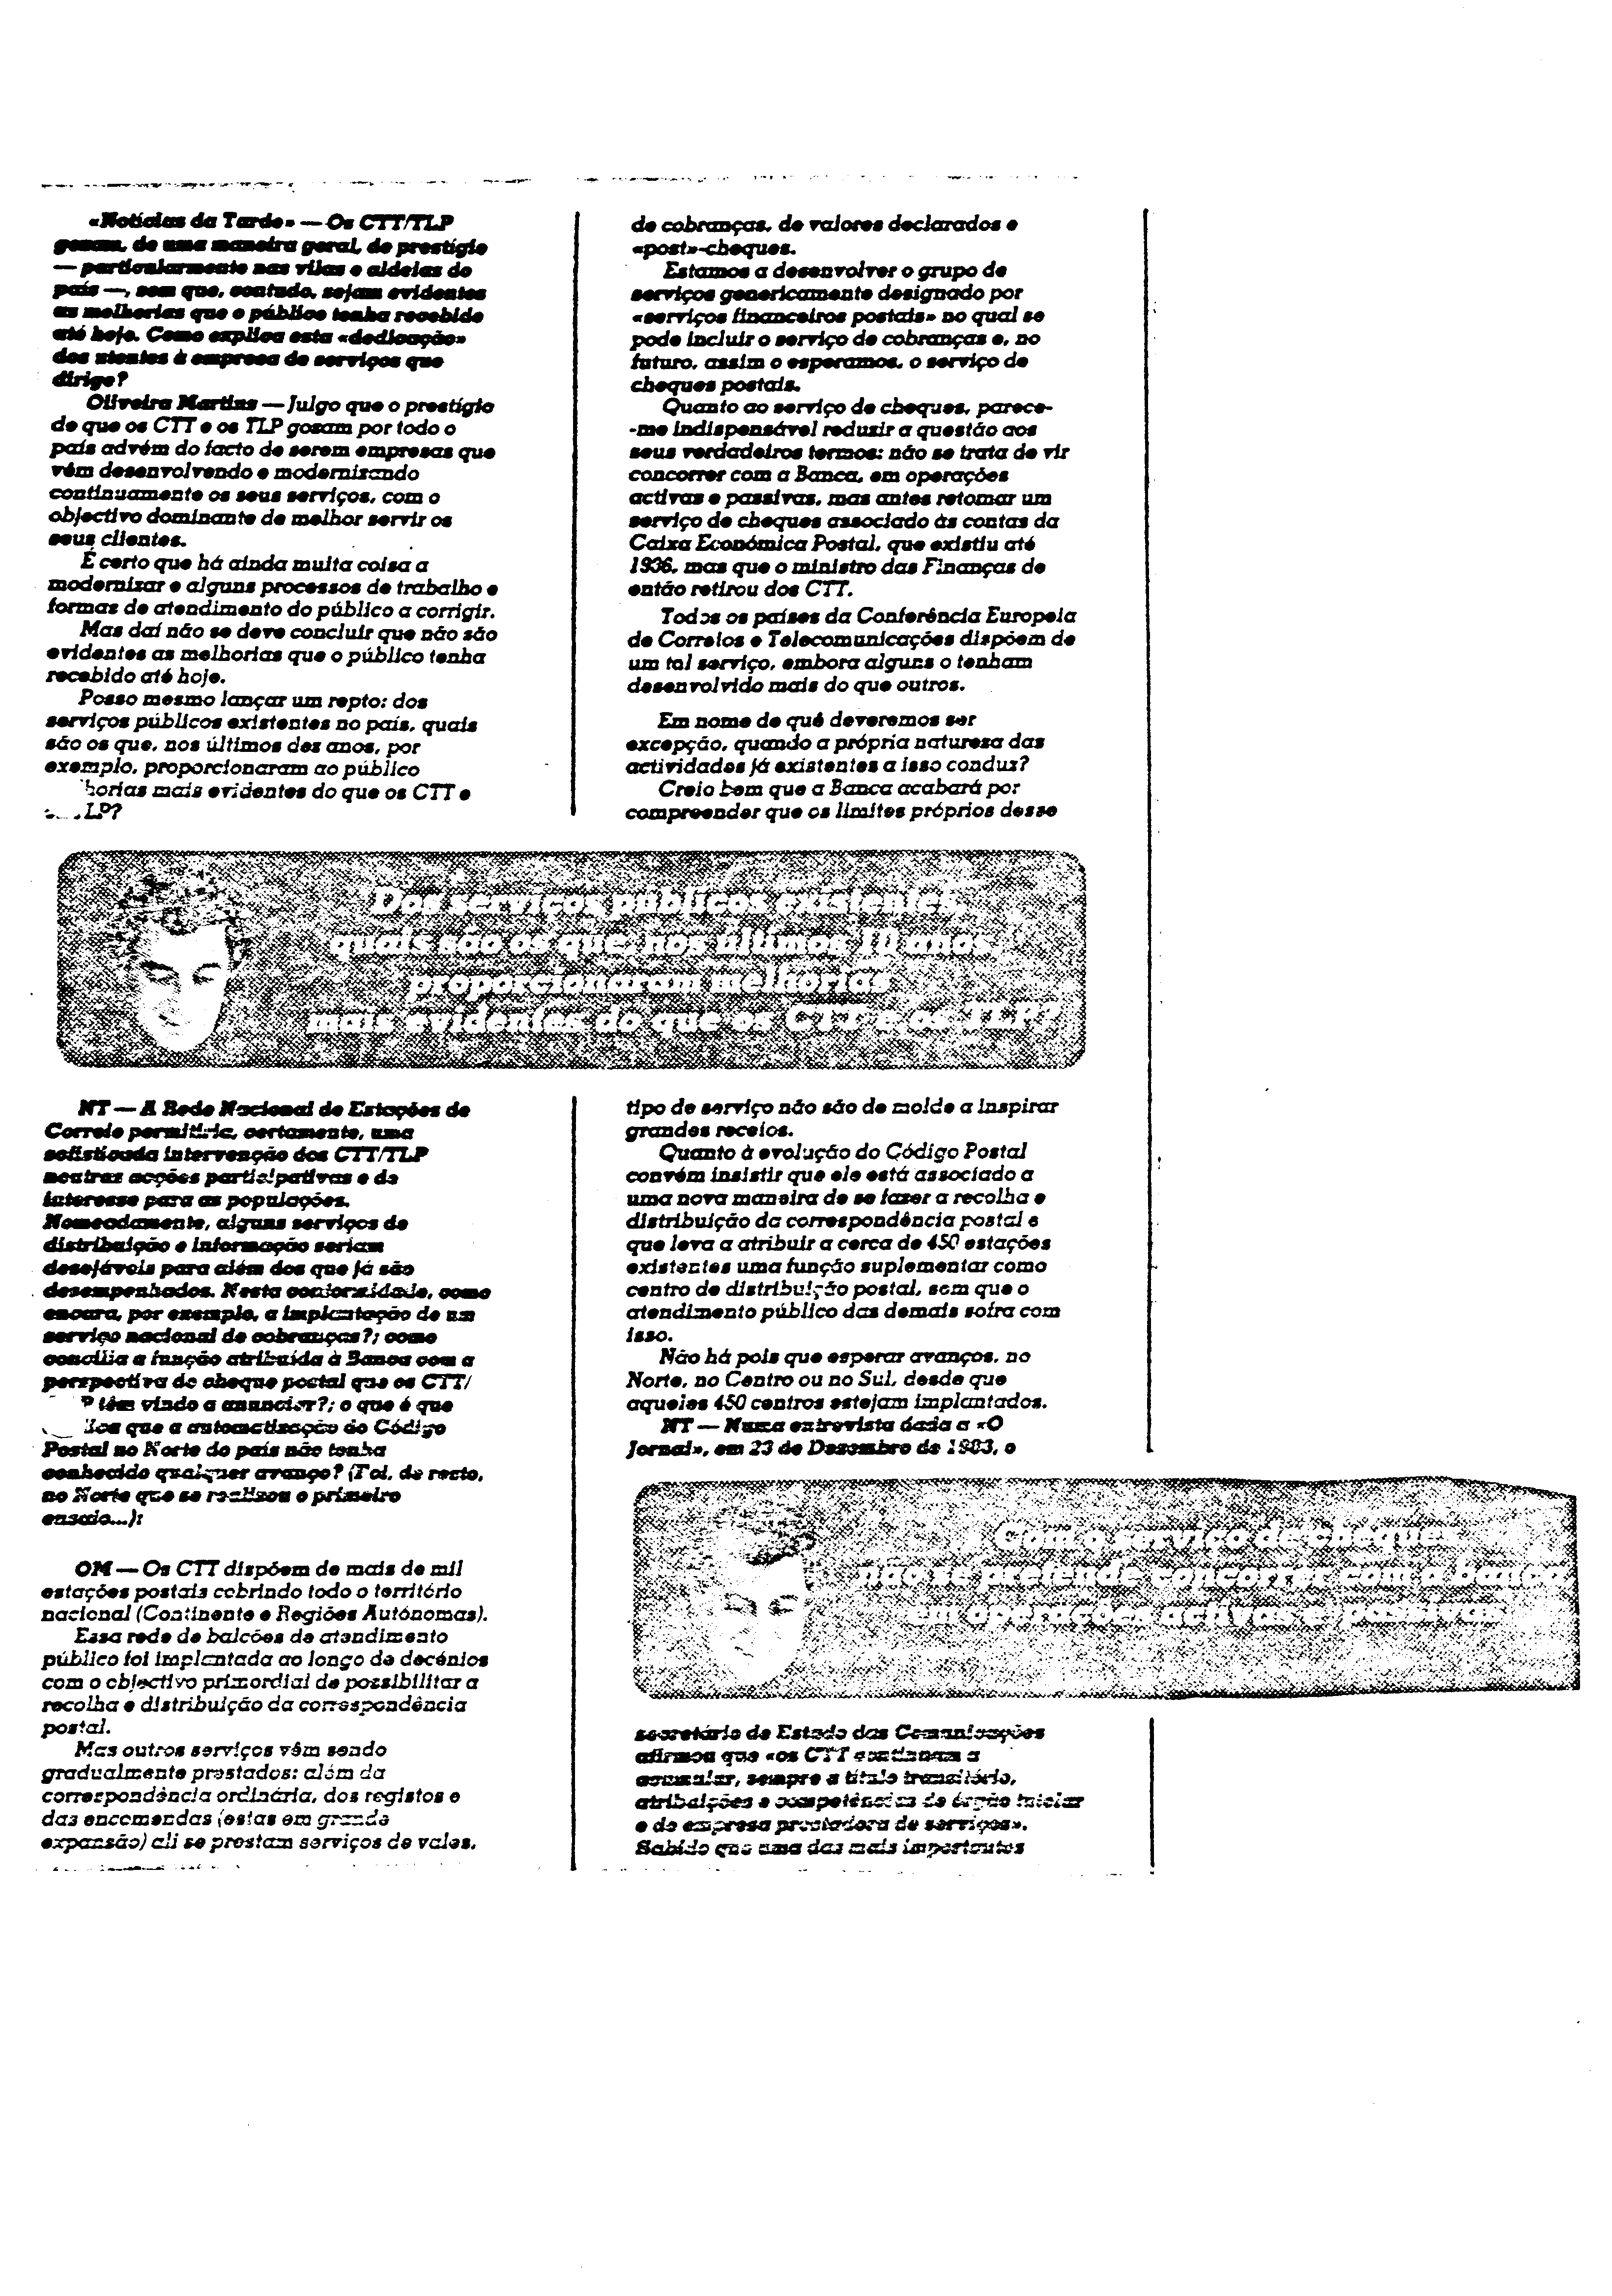 «Notícias da Tarde» — Os CTT/TLP
gozam, de uma maneira geral, de prestígio
— particularmente nas vilas e aldeias do
país —, sem que, contudo, sejam evidentes
as melhorias que o público tenha recebido
até hoje. Como explica esta «dedicação»
dos utentes à empresa de serviços que
dirige?
Oliveira Martins — Julgo que o prestígio
de que os CTT e os TLP gosam por todo o
país advém do facto de serem empresas que
vêm desenvolvendo e modernizando
continuamente os seus serviços, com o
objectivo dominante de melhor servir os
seus clientes.
É certo que há ainda muita coisa a
modernizar e alguns processos de trabalho e
formas de atendimento do público a corrigir.
Mas daí não se deve concluir que não são
evidentes as melhorias que o público tenha
recebido até hoje.
Posso mesmo lançar um repto: dos
serviços públicos existentes no país, quais
são os que, nos últimos dez anos, por
exemplo, proporcionaram ao público
horias mais evidentes do que os CTT e
LP?
Dos serviços públicos existentes,
quais são os que, nos últimos 10 anos,
proporcionaram melhorias
mais evidentes do que os CTT e os TLP?
NT — A Rede Nacional de Estações de
Correio permitiria, certamente, uma
sofisticada intervenção dos CTT/TLP
noutras acções participativas e de
interesse para as populações.
Nomeadamente, alguns serviços de
distribuição e informação seriam
desejáveis para além dos que já são
desempenhados. Nesta conformidade, como
encara, por exemplo, a implantação de um
serviço nacional de cobranças?; como
concilia a função atribuída à Banca com a
perspectiva do cheque postal que os CTT/
P têm vindo a anunciar?; o que é que
que a automatização do Código
Postal no Norte do país não tenha
conhecido qualquer avanço? (Foi, de resto,
no Norte que se realizou o primeiro
ensaio...):
OM — Os CTT dispõem de mais de mil
estações postais cobrindo todo o território
nacional (Continente e Regiões Autónomas).
Essa rede de balcões de atendimento
público foi implantada ao longo de decénios
com o objectivo primordial de possibilitar a
recolha e distribuição da correspondência
postal.
Mas outros serviços vêm sendo
gradualmente prestados: além da
correspondência ordinária, dos registos e
das encomendas (estas em grande
expansão) ali se prestam serviços de vales,
de cobranças, de valores declarados e
«post»-cheques.
Estamos a desenvolver o grupo de
serviços genericamente designado por
«serviços financeiros postais» no qual se
pode incluir o serviço de cobranças e, no
futuro, assim o esperamos, o serviço de
cheques postais.
Quanto ao serviço de cheques, parece-
-me indispensável reduzir a questão aos
seus verdadeiros termos: não se trata de vir
concorrer com a Banca, em operações
activas e passivas, mas antes retomar um
serviço de cheques associado às contas da
Caixa Económica Postal, que existiu até
1936, mas que o ministro das Finanças de
então retirou dos CTT.
Todos os países da Conferência Europeia
de Correios e Telecomunicações dispõem de
um tal serviço, embora alguns o tenham
desenvolvido mais do que outros.
Em nome de quê deveremos ser
excepção, quando a própria natureza das
actividades já existentes a isso conduz?
Creio bem que a Banca acabará por
compreender que os limites próprios desse
tipo de serviço não são de molde a inspirar
grandes receios.
Quanto à evolução do Código Postal
convém insistir que ele está associado a
uma nova maneira de se fazer a recolha e
distribuição da correspondência postal e
que leva a atribuir a cerca de 450 estações
existentes uma função suplementar como
centro de distribuição postal, sem que o
atendimento público das demais sofra com
isso.
Não há pois que esperar avanços, no
Norte, no Centro ou no Sul, desde que
aqueles 450 centros estejam implantados.
NT — Numa entrevista dada a «O
Jornal», em 23 de Dezembro de 1983, o
Com o serviço de cheques
não se pretende concorrer com a banca
em operações activas e passivas
secretário de Estado das Comunicações
afirmou que «os CTT continuam a
acumular, sempre a título transitório,
atribuições e competências de órgão tutelar
e de empresa prestadora de serviços».
Sabido que uma das mais importantes